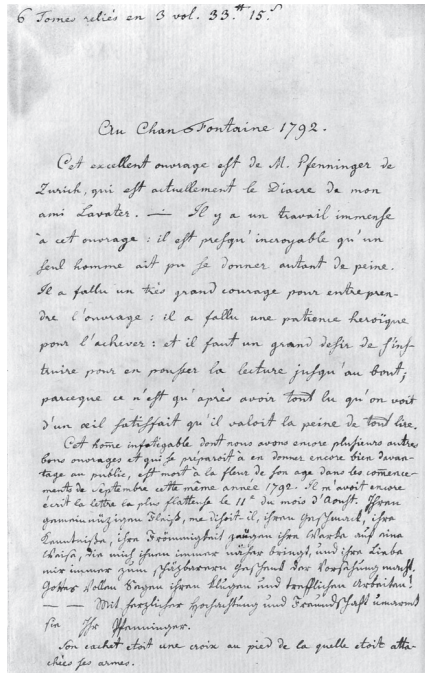 6 Tomes reliés en 3 vol. 33.# 15.s
Au Chan Fontaine 1792.
Cet excellent ouvrage est de M. Pfenninger de
Zurich, qui est actuellement le Diacre de mon
ami Lavater. — Il y a un travail immense
à cet ouvrage : il est presqu'incroyable qu'un
seul homme ait pu se donner autant de peine.
Il a fallu un très grand courage pour entrepren-
dre l'ouvrage : il a fallu une patience heroïque
pour l'achever : et il faut un grand desir de s'ins-
truire pour en pousser la lecture jusqu'au bout;
parceque ce n'est qu'après avoir tout lu qu'on voit
d'un œil satisfait qu'il valoit la peine de tout lire.
Cet home infatigable dont nous avons encore plusieurs autres
bons ouvrages et qui se préparoit à en donner encore bien davan-
tage au public, est mort à la fleur de son age dans les comence-
ments de Septembre cette même année 1792. Il m'avoit encore
écrit la lettre la plus flatteuse le 11e du mois d'Aoust. Ihren
gemeinnüzigen Fleiß, me disoit-il, ihren Geschmack, ihre
Kenntniße, ihre Frömmigkeit zeugen ihre Werke auf eine
Weise, die mich ihnen immer näher bringt, und ihre Liebe
mir immer zum schäzbarern Geschenk der Vorsehung macht.
Gottes vollen Segen ihren klugen und trefflichen Arbeiten!
— — Mit herzlicher Hochachtung und Freundschaft umarmt
sie Ihr Pfenninger.
Son cachet etoit une croix au pied de la quelle etoit atta-
chées ses armes.